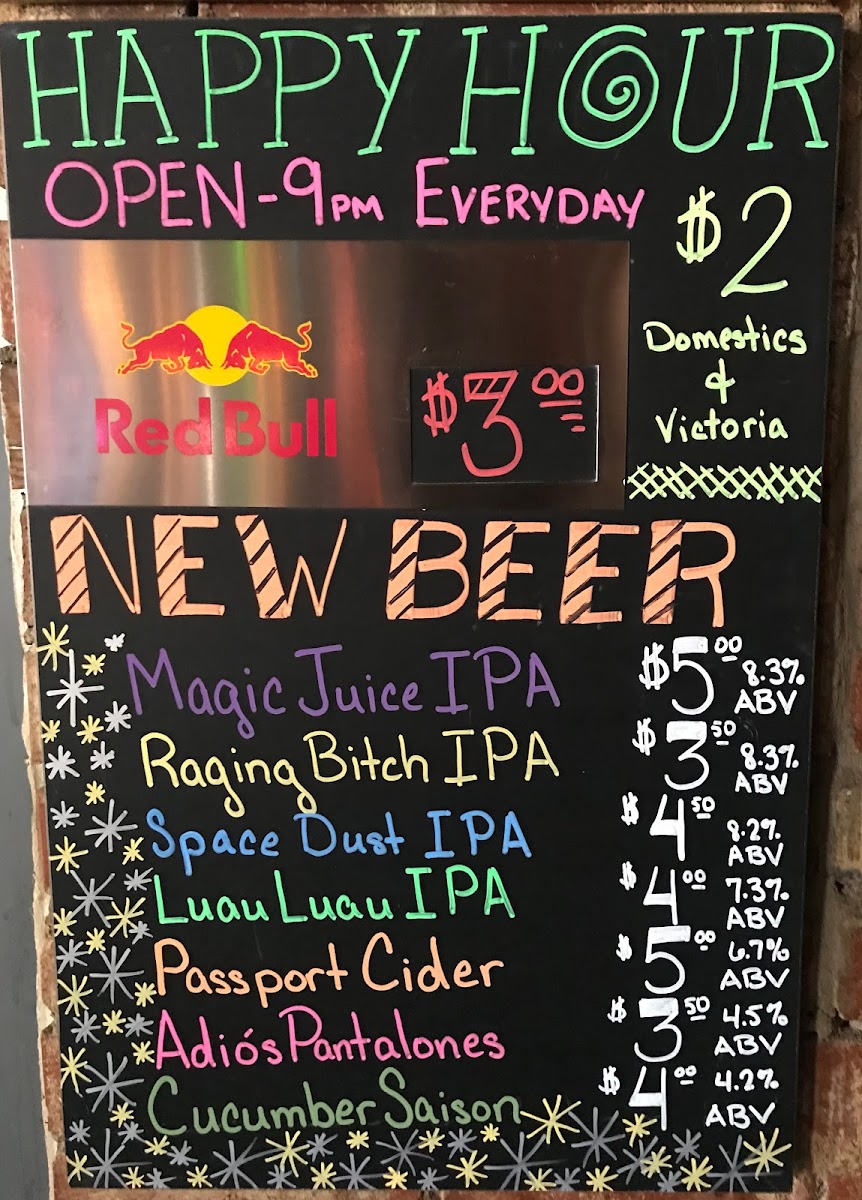 HAPPY HOUR
OPEN-9PM EVERYDAY
$2
Domestics
&
Victoria
Red Bull
$3.00
NEW BEER
Magic Juice IPA $5.00 8.3% ABV
Raging Bitch IPA $3.50 8.3% ABV
Space Dust IPA $4.50 8.2% ABV
Luau Luau IPA $4.00 7.3% ABV
Passport Cider $5.00 6.7% ABV
Adiós Pantalones $3.50 4.5% ABV
Cucumber Saison $4.00 4.2% ABV